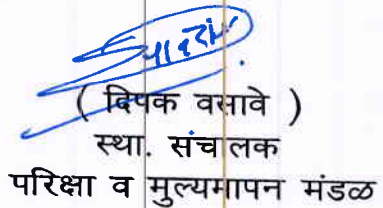 ( दिपक वसावे )
स्था. संचालक
परिक्षा व मुल्यमापन मंडळ